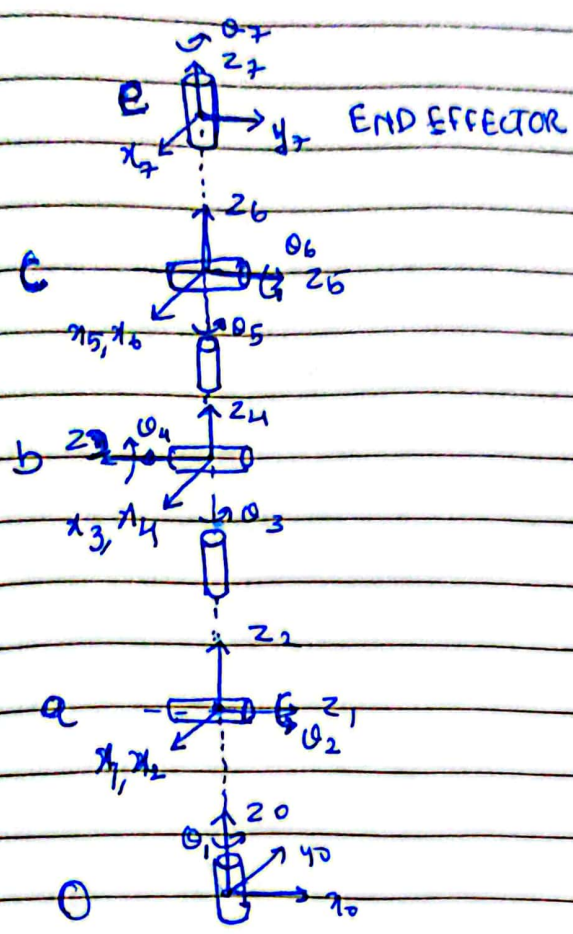 θ7
Z7
e
y7
END EFFECTOR
x7
Z6
θ6
C
Z5
x5, x6
θ5
Z4
θ4
b
x3, x4
θ3
Z2
a
Z1
θ2
x1, x2
Z0
θ1
y0
O
x0